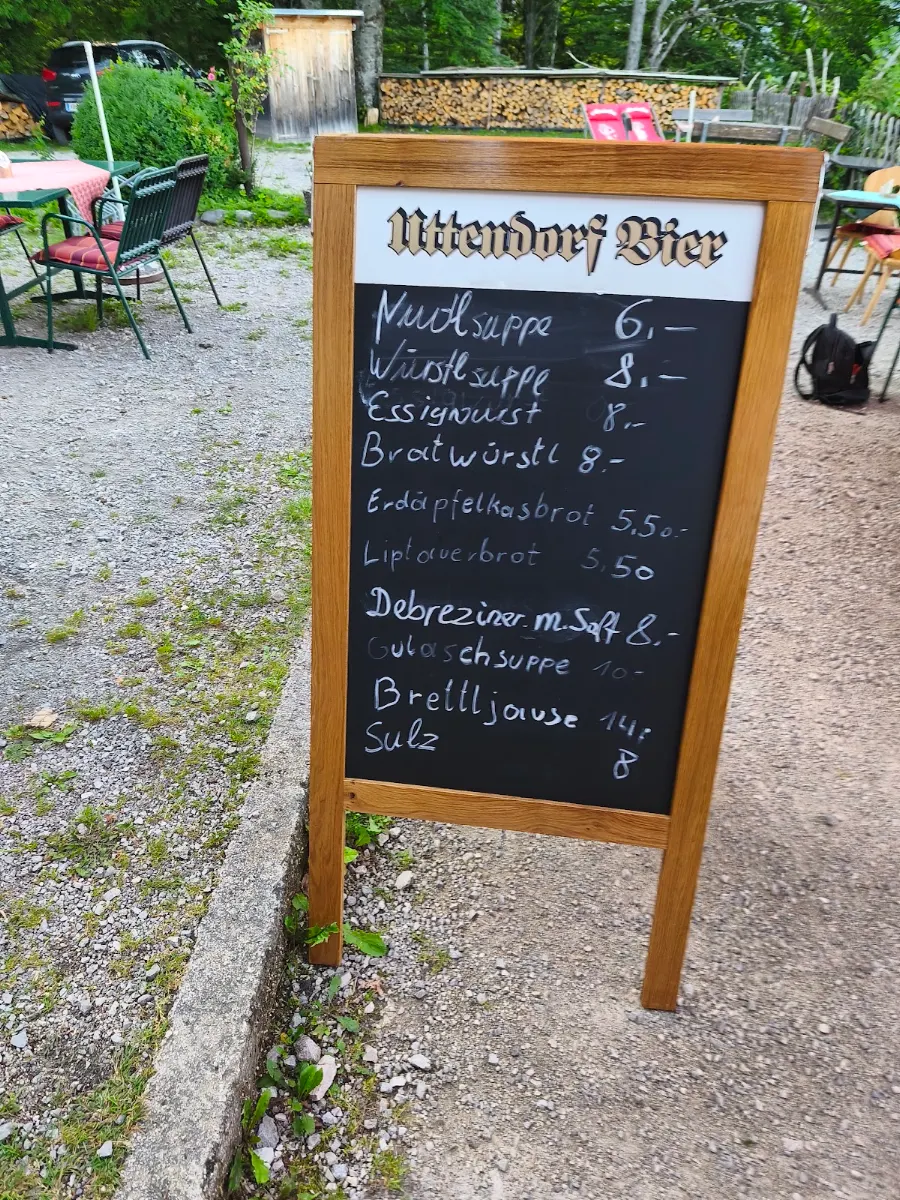 Uttendorf Bier
Nudlsuppe 6,—
Würstlsuppe 8,—
Essigwurst 8,-
Bratwürstl 8.-
Erdäpfelkasbrot 5,50.-
Liptauerbrot 5,50
Debreziner m. Saft 8,-
Gulaschsuppe 10-
Brettljause 14,-
Sulz 8